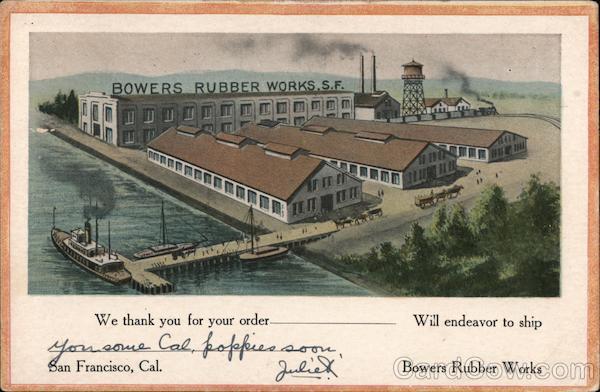 BOWERS RUBBER WORKS, S.F.
We thank you for your order Will endeavor to ship
you some Cal. poppies soon
Juliet
San Francisco, Cal. Bowers Rubber Works
CardCow.com